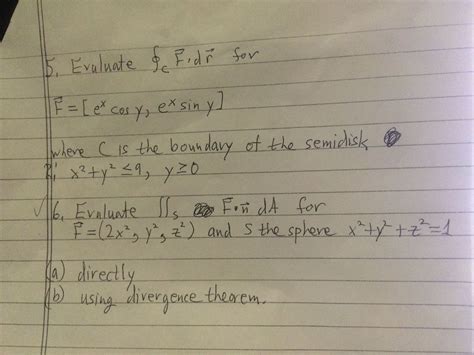 5. Evaluate ∮_C F⃗·dr⃗ for
F⃗ = [e^x cos y, e^x sin y]
where C is the boundary of the semidisk
R: x²+y² ≤ 9, y ≥ 0
√6. Evaluate ∬_S F⃗·n⃗ dA for
F⃗ = (2x², y², z²) and S the sphere x²+y²+z²=1
(a) directly
(b) using divergence theorem.